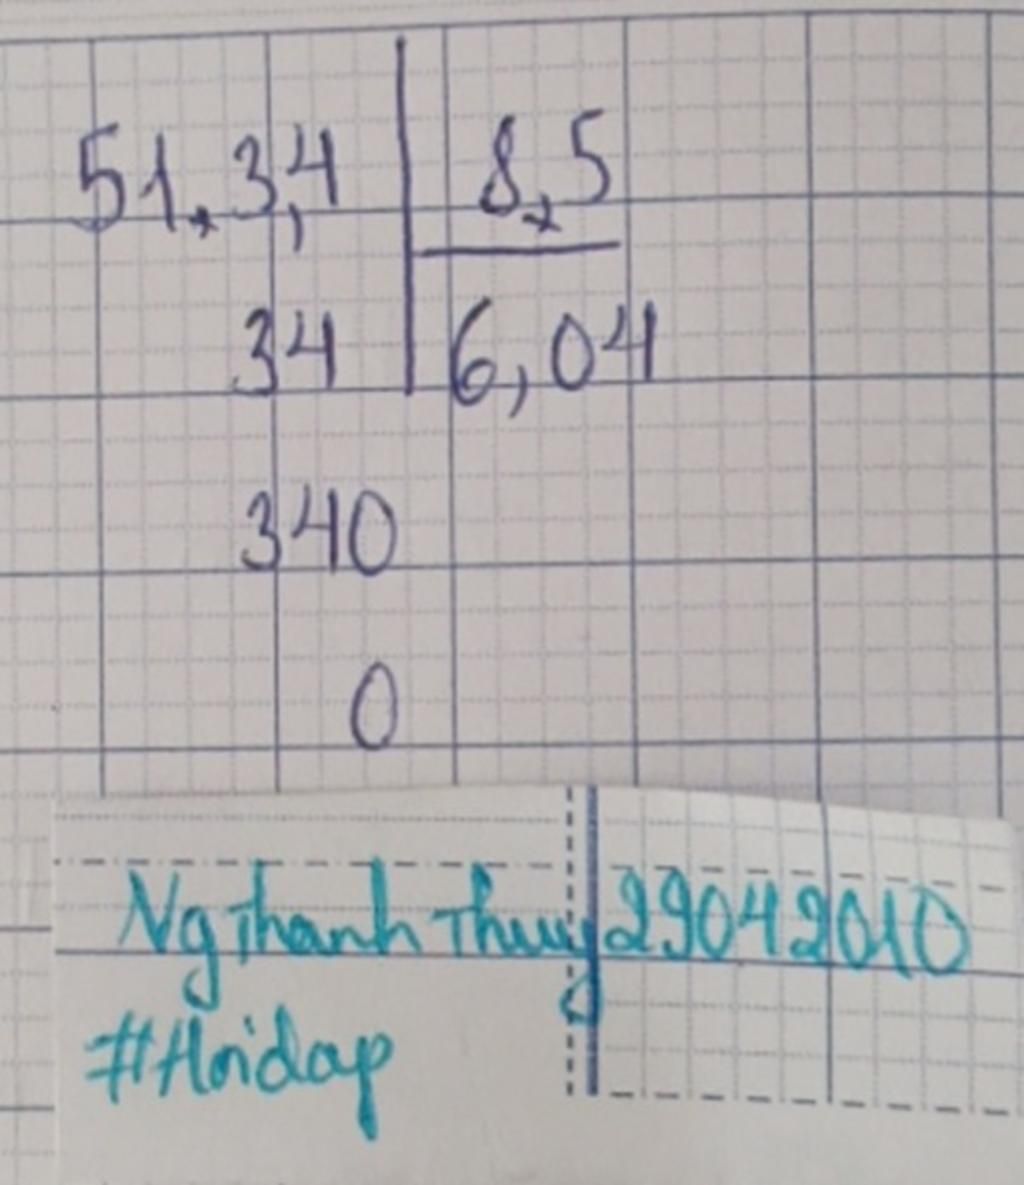 51,3,4 8,5
34 6,04
340
0
NgThanhThuy29042010
#Hoidap